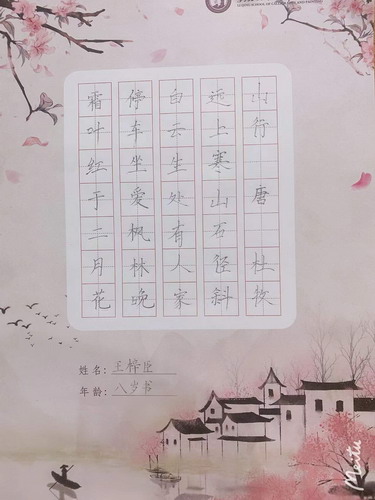 山行 唐 杜牧
远上寒山石径斜
白云生处有人家
停车坐爱枫林晚
霜叶红于二月花
姓名：王梓臣
年龄：八岁书
Meitu